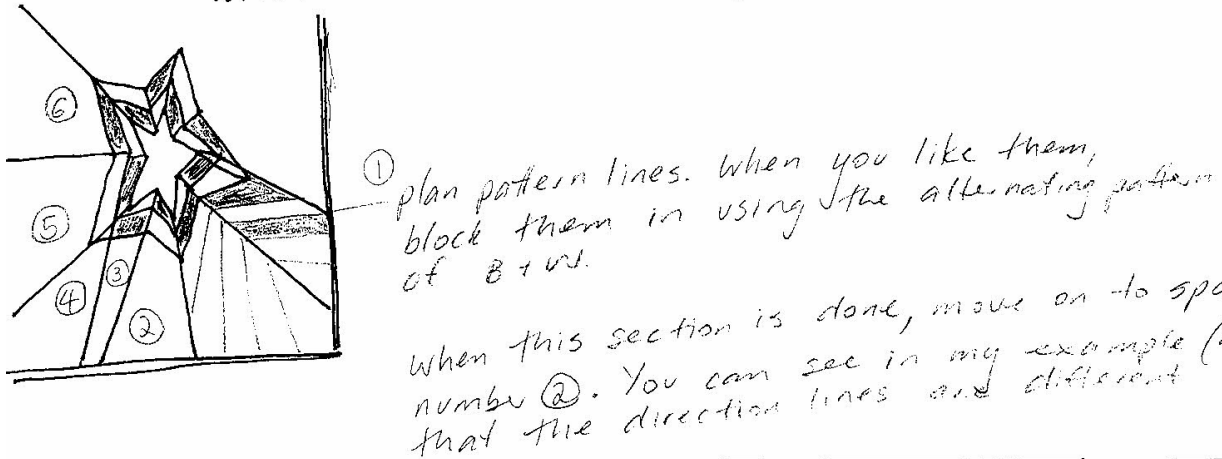 ⑥
⑤
④
③
②
① plan pattern lines. When you like them,
block them in using the alternating pattern
of B + W.
When this section is done, move on to
number ②. You can see in my example
that the direction lines and different